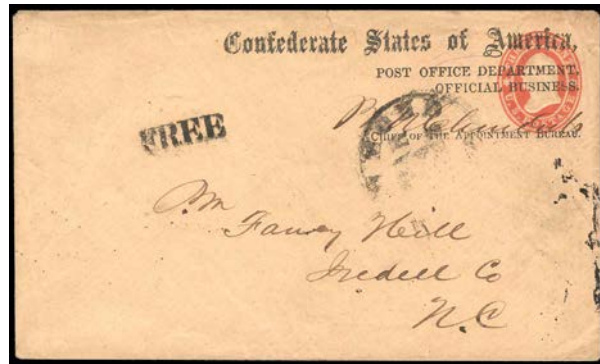 Confederate States of America,
POST OFFICE DEPARTMENT.
OFFICIAL BUSINESS.
CHIEF OF THE APPOINTMENT BUREAU.
FREE
PM
Fancy Hill
Iredell Co
N.C